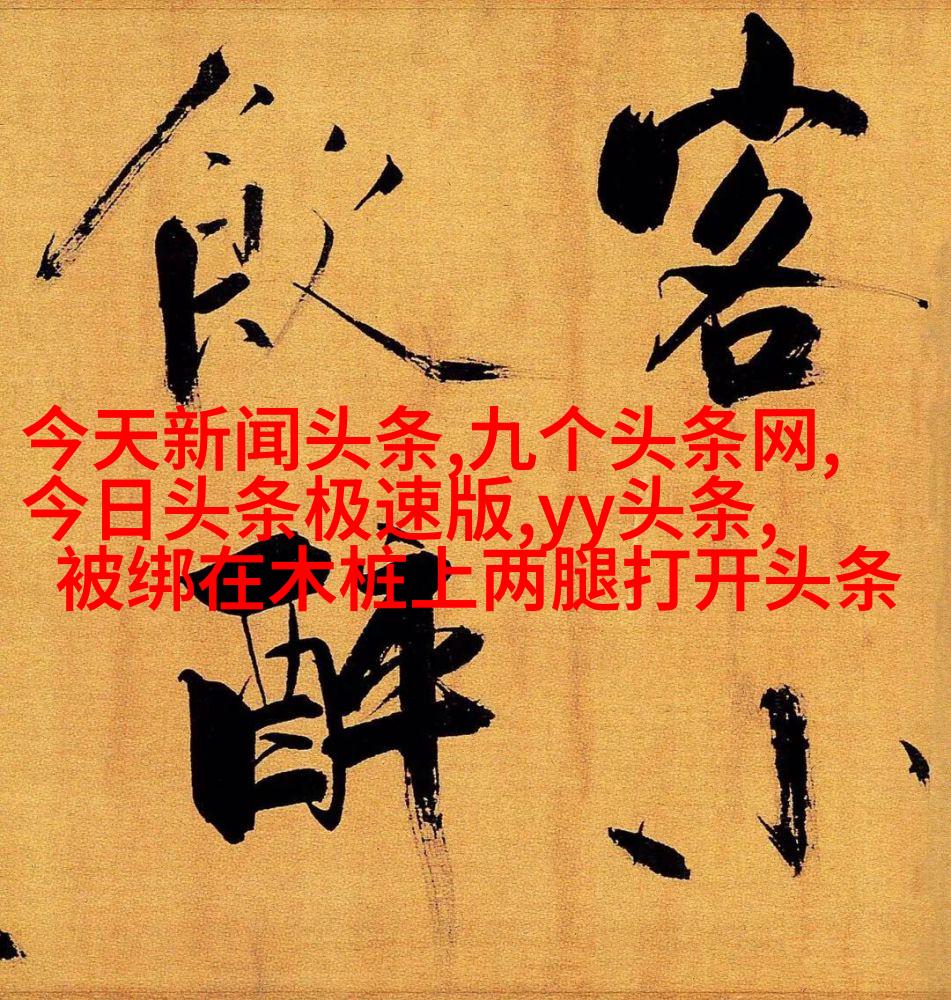 客小
飲醉
今天新闻头条,九个头条网,
今日头条极速版,yy头条,
被绑在木桩上两腿打开头条